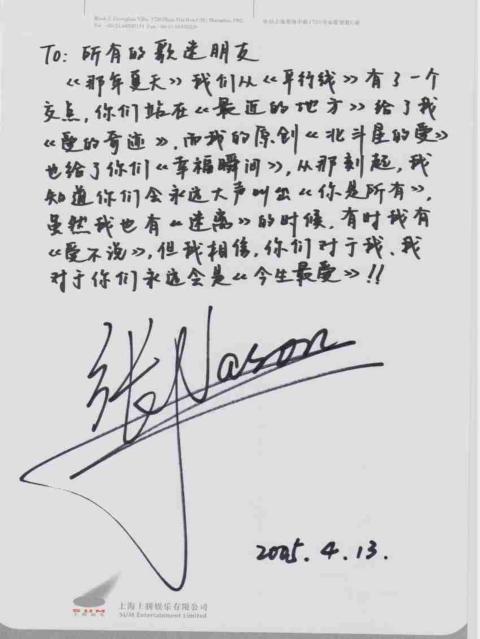 To: 所有的歌迷朋友
《那年夏天》我们从《平行线》有了一个
交点，你们站在《最近的地方》给了我
《爱的奇迹》，而我的原创《北斗星的爱》
也给了你们《幸福瞬间》，从那刻起，我
知道你们会永远大声叫出《你是所有》，
虽然我也有《迷离》的时候，有时我有
《爱不说》，但我相信，你们对于我、我
对于你们永远会是《今生最爱》!!
张Nason
2005.4.13.
SUM
上腾娱乐
上海上腾娱乐有限公司
SUM Entertainment Limited